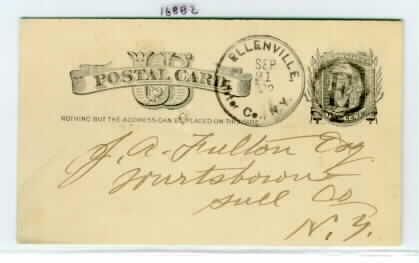 16882
ELLENVILLE,
SEP
21
Ulster Co., N.Y.
POSTAL CARD
US
NOTHING BUT THE ADDRESS CAN BE PLACED ON THIS SIDE
E
ONE CENT
J. A. Fulton Esq
Wurtsboro
Sull Co
N. Y.